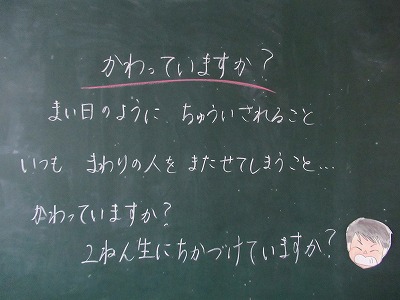 かわっていますか？
まい日のように ちゅういされること
いつも まわりの人を またせてしまうこと…
かわっていますか？
2ねん生にちかづけていますか？